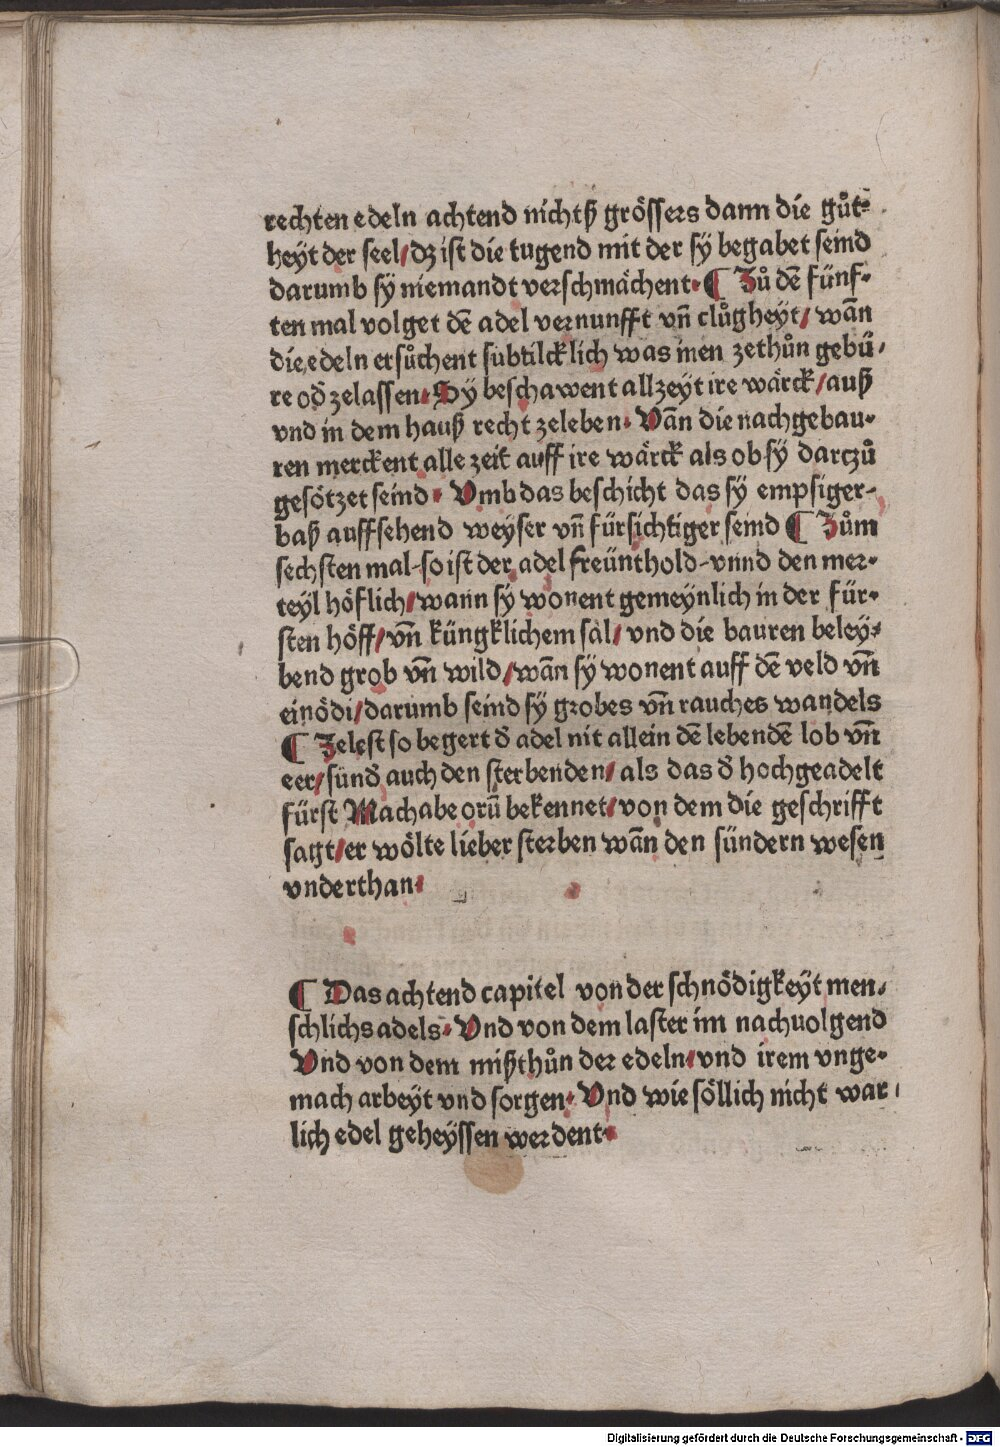 rechten edeln achtend nichtß grössers dann die guͦt-
heyt der seel/dz ist die tugend mit der sÿ begabet seind
darumb sÿ niemandt verschmächent· ¶ Zuͦ dē fünf-
ten mal volget dē adel vernunfft vn̄ cluͦgheyt/ wān
die edeln ersuͦchent subtilcklich was inen zethuͦn gebü-
re od̄ zelassen· Sÿ beschawent allzeyt ire wärck/auß
vnd in dem hauß recht zeleben· Vān die nachgebau-
ren merckent alle zeit auff ire wärck als ob sÿ darczuͦ
gesötzet seind· Vmb das beschicht das sÿ empsiger-
baß auffsehend weyser vn̄ fürsichtiger seind ¶ Zuͦm
sechsten mal-so ist der adel freünthold-vnnd den mer-
teyl höflich/wann sÿ wonent gemeynlich in der für-
sten höff/vn̄ küngklichem sal/ vnd die bauren beley-
bend grob vn̄ wild/wān sÿ wonent auff dē veld vn̄
einödi/darumb seind sÿ grobes vn̄ rauches wandels
¶ Zelest so begert d̄ adel nit allein dē lebendē lob vn̄
eer/sünd̄ auch den sterbenden/ als das d̄ hochgeadelt
fürst Machabeorū bekennet/von dem die geschrifft
sagt/er wölte lieber sterben wān den sündern wesen
vnderthan·
¶ Das achtend capitel von der schnödigkeyt men-
schlichs adels· Vnd von dem laster im nachuolgend
Vnd von dem mißthuͦn der edeln/vnd irem vnge-
mach arbeyt vnd sorgen· Vnd wie söllich nicht war-
lich edel geheyssen werdent·
Digitalisierung gefördert durch die Deutsche Forschungsgemeinschaft - DFG